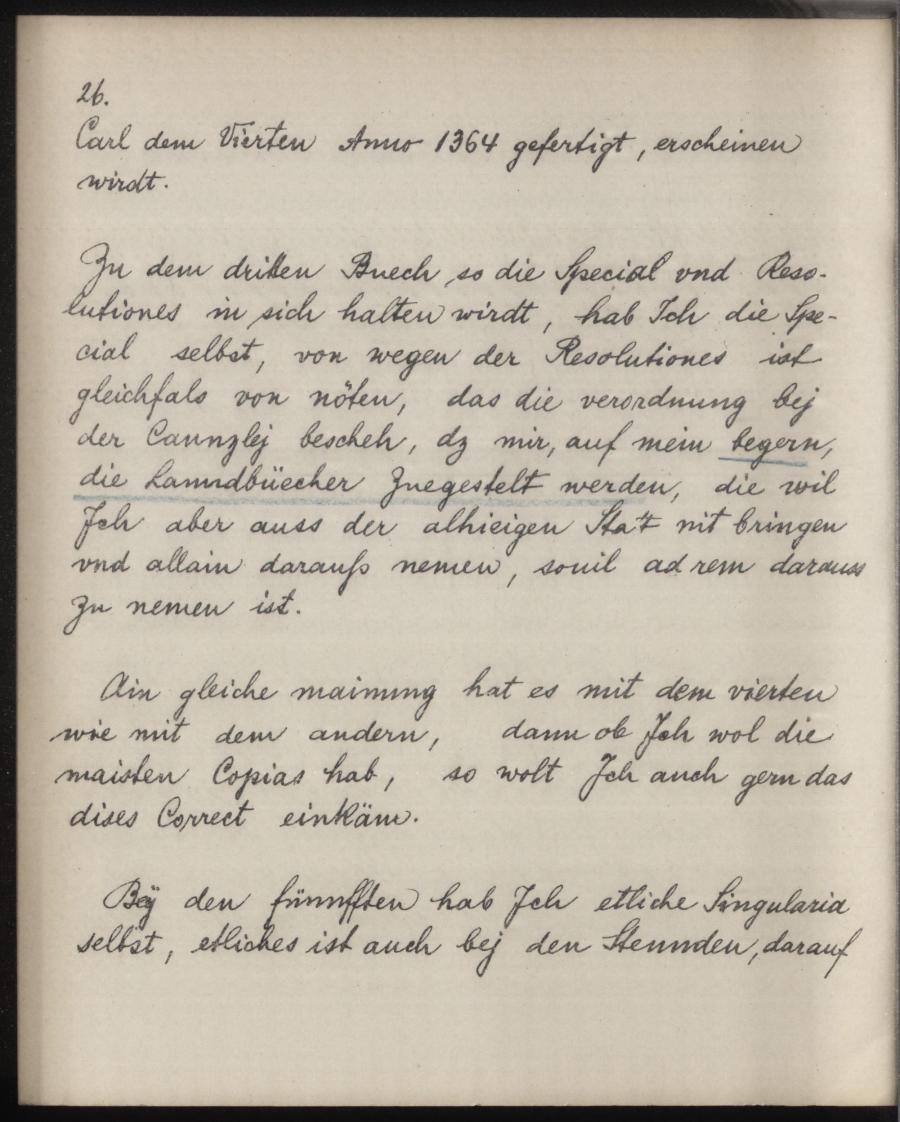 26.
Carl dem Vierten Anno 1364 gefertigt, erscheinen
wirdt.
Zu dem dritten Buech so die Special vnd Reso-
lutiones in sich halten wirdt, hab Ich die Spe-
cial selbst, von wegen der Resolutiones ist
gleichfals von nöten, das die verordnung bej
der Cannzlej bescheh, dz mir, auf mein begern,
die Lanndbüecher Zuegestelt werden, die wil
Ich aber auss der alhieigen Stat nit bringen
vnd allain darauſs nemen, souil ad rem darauss
Zu nemen ist.
Ain gleiche mainung hat es mit dem vierten
wie mit dem andern, dann ob Ich wol die
maisten Copias hab, so wolt Ich auch gern das
dises Correct einkäm.
Beÿ den fünnfften hab Ich etliche Singularia
selbst, etliches ist auch bej den Stennden, darauf